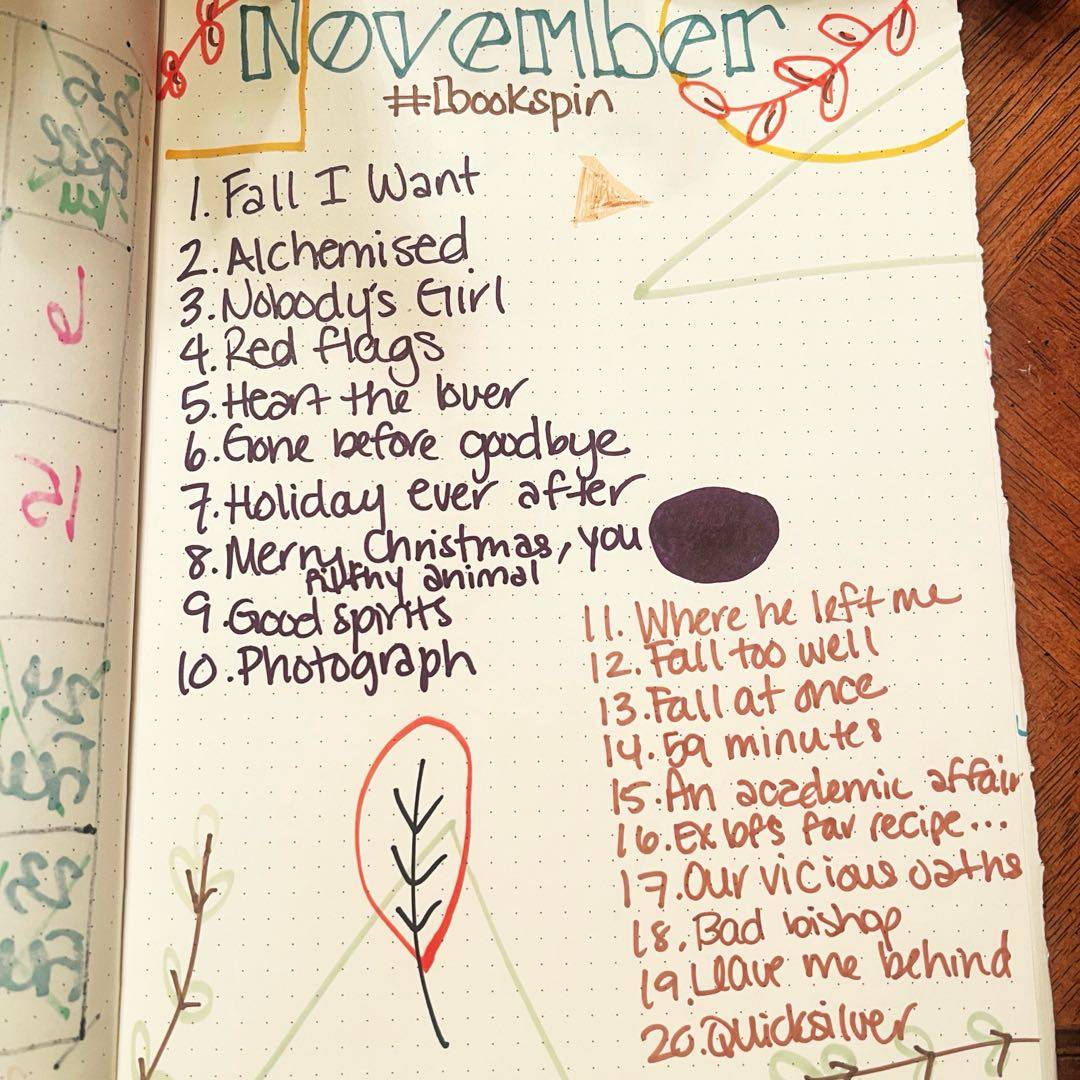 November
#bookspin
1. Fall I Want
2. Alchemised
3. Nobody's Girl
4. Red flags
5. Heart the lover
6. Gone before goodbye
7. Holiday ever after
8. Merry Christmas, you
filthy animal
9. Good spirits
10. Photograph
11. Where he left me
12. Fall too well
13. Fall at once
14. 59 minutes
15. An academic affair
16. Ex bfs fav recipe...
17. Our vicious oaths
18. Bad bishop
19. Leave me behind
20. Quicksilver
15